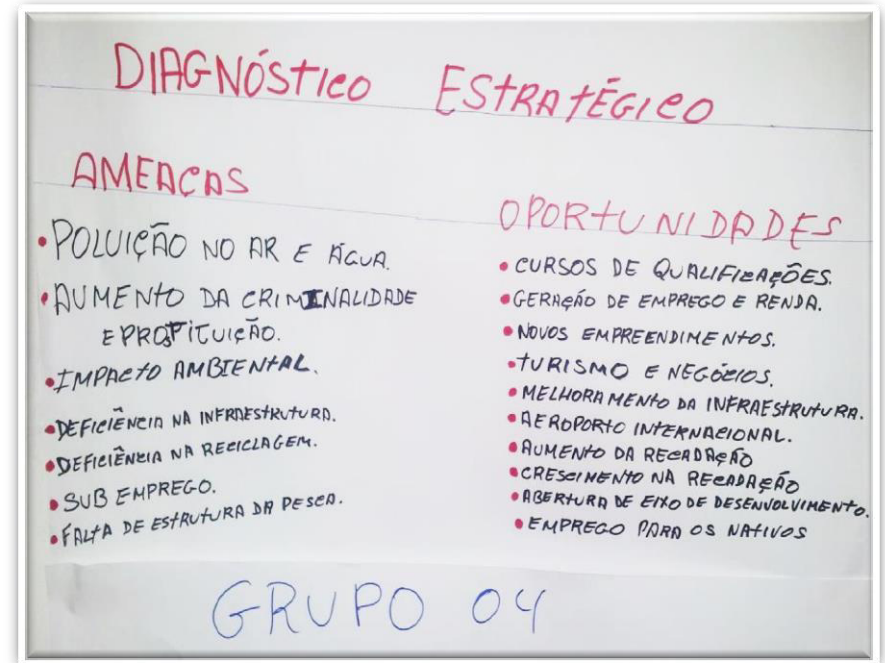 DIAGNÓSTICO ESTRATÉGICO
AMEAÇAS
• POLUIÇÃO NO AR E ÁGUA.
• AUMENTO DA CRIMINALIDADE
E PROSTITUIÇÃO.
• IMPACTO AMBIENTAL.
• DEFICIÊNCIA NA INFRAESTRUTURA.
• DEFICIÊNCIA NA RECICLAGEM.
• SUB EMPREGO.
• FALTA DE ESTRUTURA DA PESCA.
OPORTUNIDADES
• CURSOS DE QUALIFICAÇÕES.
• GERAÇÃO DE EMPREGO E RENDA.
• NOVOS EMPREENDIMENTOS.
• TURISMO E NEGÓCIOS.
• MELHORAMENTO DA INFRAESTRUTURA.
• AEROPORTO INTERNACIONAL.
• AUMENTO DA RECADAÇÃO
• CRESCIMENTO NA RECADAÇÃO
• ABERTURA DE EIXO DE DESENVOLVIMENTO.
• EMPREGO PARA OS NATIVOS
GRUPO 04